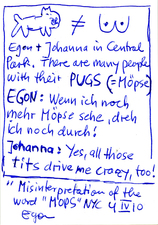 ≠
Egon + Johanna in Central
Park. There are many people
with their PUGS (= Möpse)
EGON: Wenn ich noch
mehr Möpse sehe, dreh
ich noch durch!
Johanna: Yes, all those
tits drive me crazy, too!
"Misinterpretation of the
word "MOPS" NYC 4 IV 10
Egon